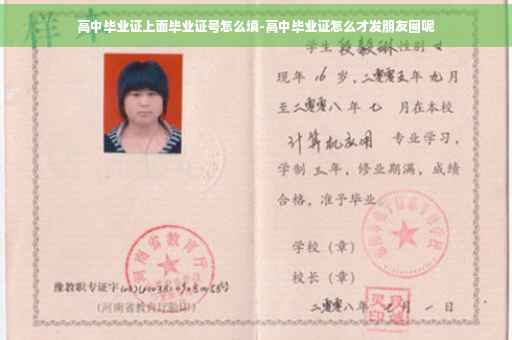 高中毕业证上面毕业证号怎么填-高中毕业证怎么才发朋友圈呢
样本
学生段毅琳性别女
现年16岁,二零零五年九月
至二零零八年七月在本校
计算机应用专业学习,
学制三年,修业期满,成绩
合格,准予毕业
学校(章)
校长(章)
二零零八年七月一日
河南省教育厅
豫教职专证字
(河南省教育厅验印)